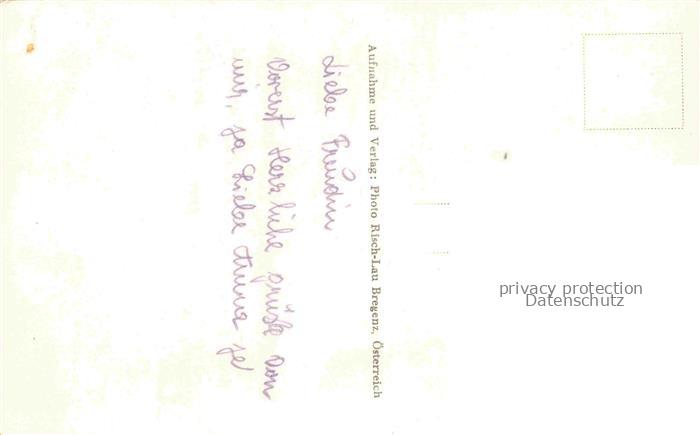 Liebe Freudin
Vorerst Herzliche grüße von
mir, ja Liebe Anna je
Aufnahme und Verlag: Photo Risch-Lau Bregenz, Österreich
privacy protection
Datenschutz